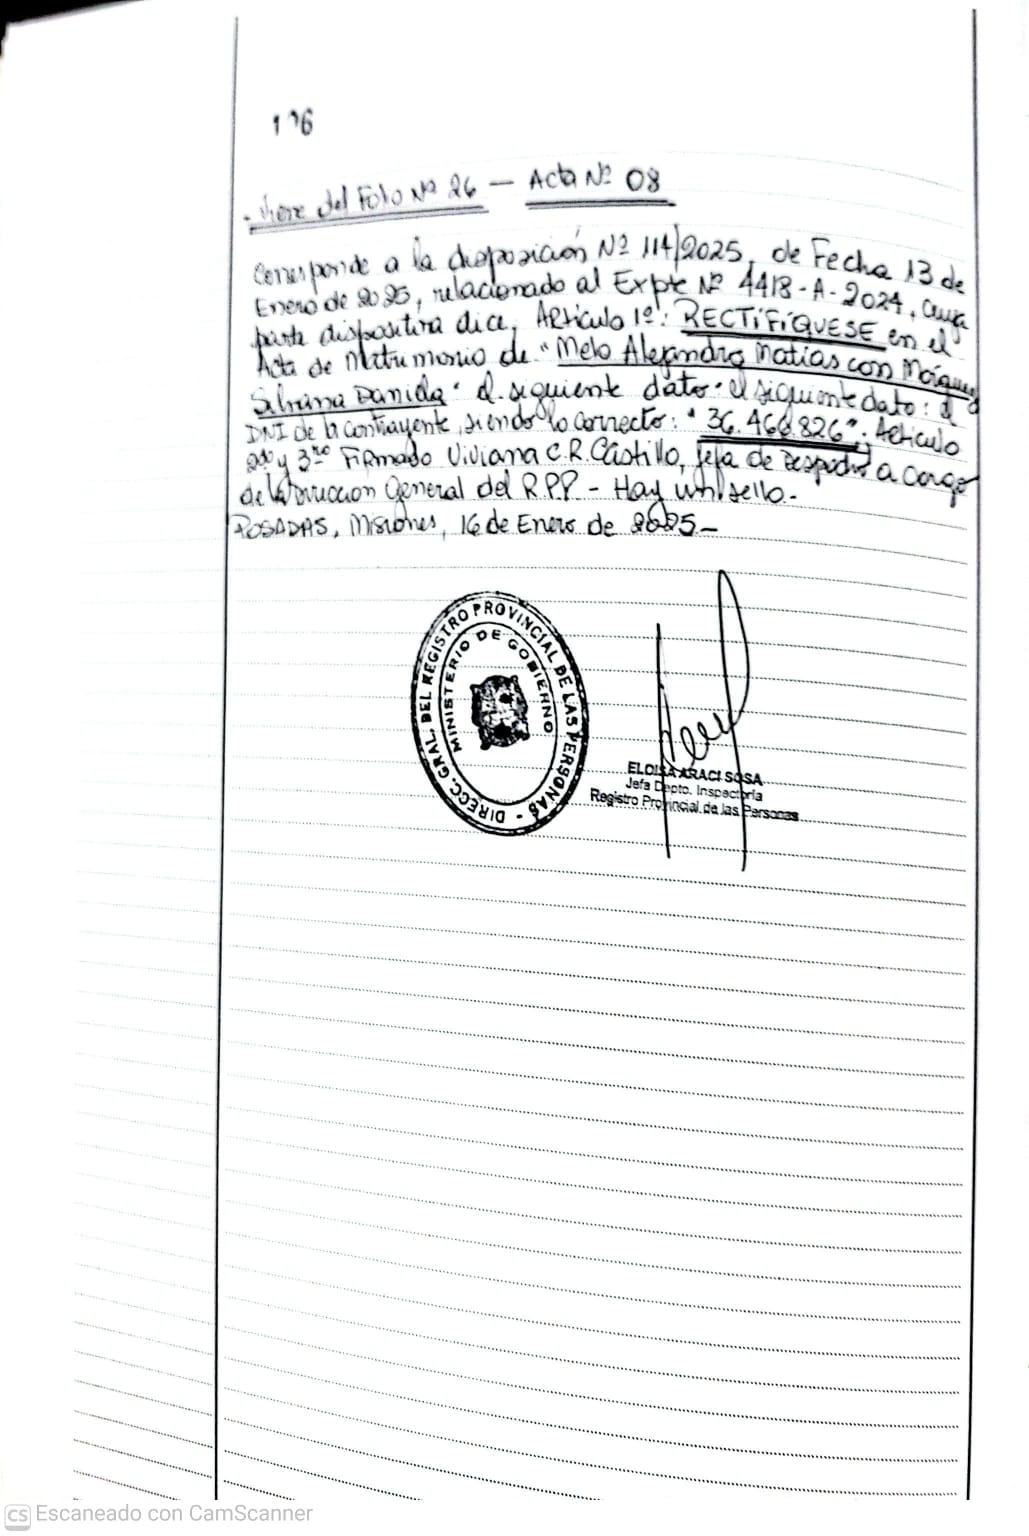 106
. Viene del Folo Nº 26 — Acta Nº 08
Corresponde a la disposición Nº 114/2025, de Fecha 13 de
Enero de 2025, relacionado al Expte Nº 4418-A-2024, cuya
parte dispositiva dice, Articulo 1º: RECTIFIQUESE en el
Acta de Matrimonio de "Melo Alejandro Matias con
Silvana Daniela" el siguiente dato: el siguiente dato: el
DNI de la contrayente, siendo lo correcto: "36.460.826"; Articulo
2do y 3ro Firmado Viviana C.R. Castillo, Jefa de Despacho a cargo
de la Direccion General del R.P.P. - Hay un sello.-
POSADAS, Misiones, 16 de Enero de 2025.-
DIRECC. GRAL. DEL REGISTRO PROVINCIAL DE LAS PERSONAS -
MINISTERIO DE GOBIERNO
ELOISA ARACI SOSA
Jefa Depto. Inspectoría
Registro Provincial de las Personas
CS Escaneado con CamScanner